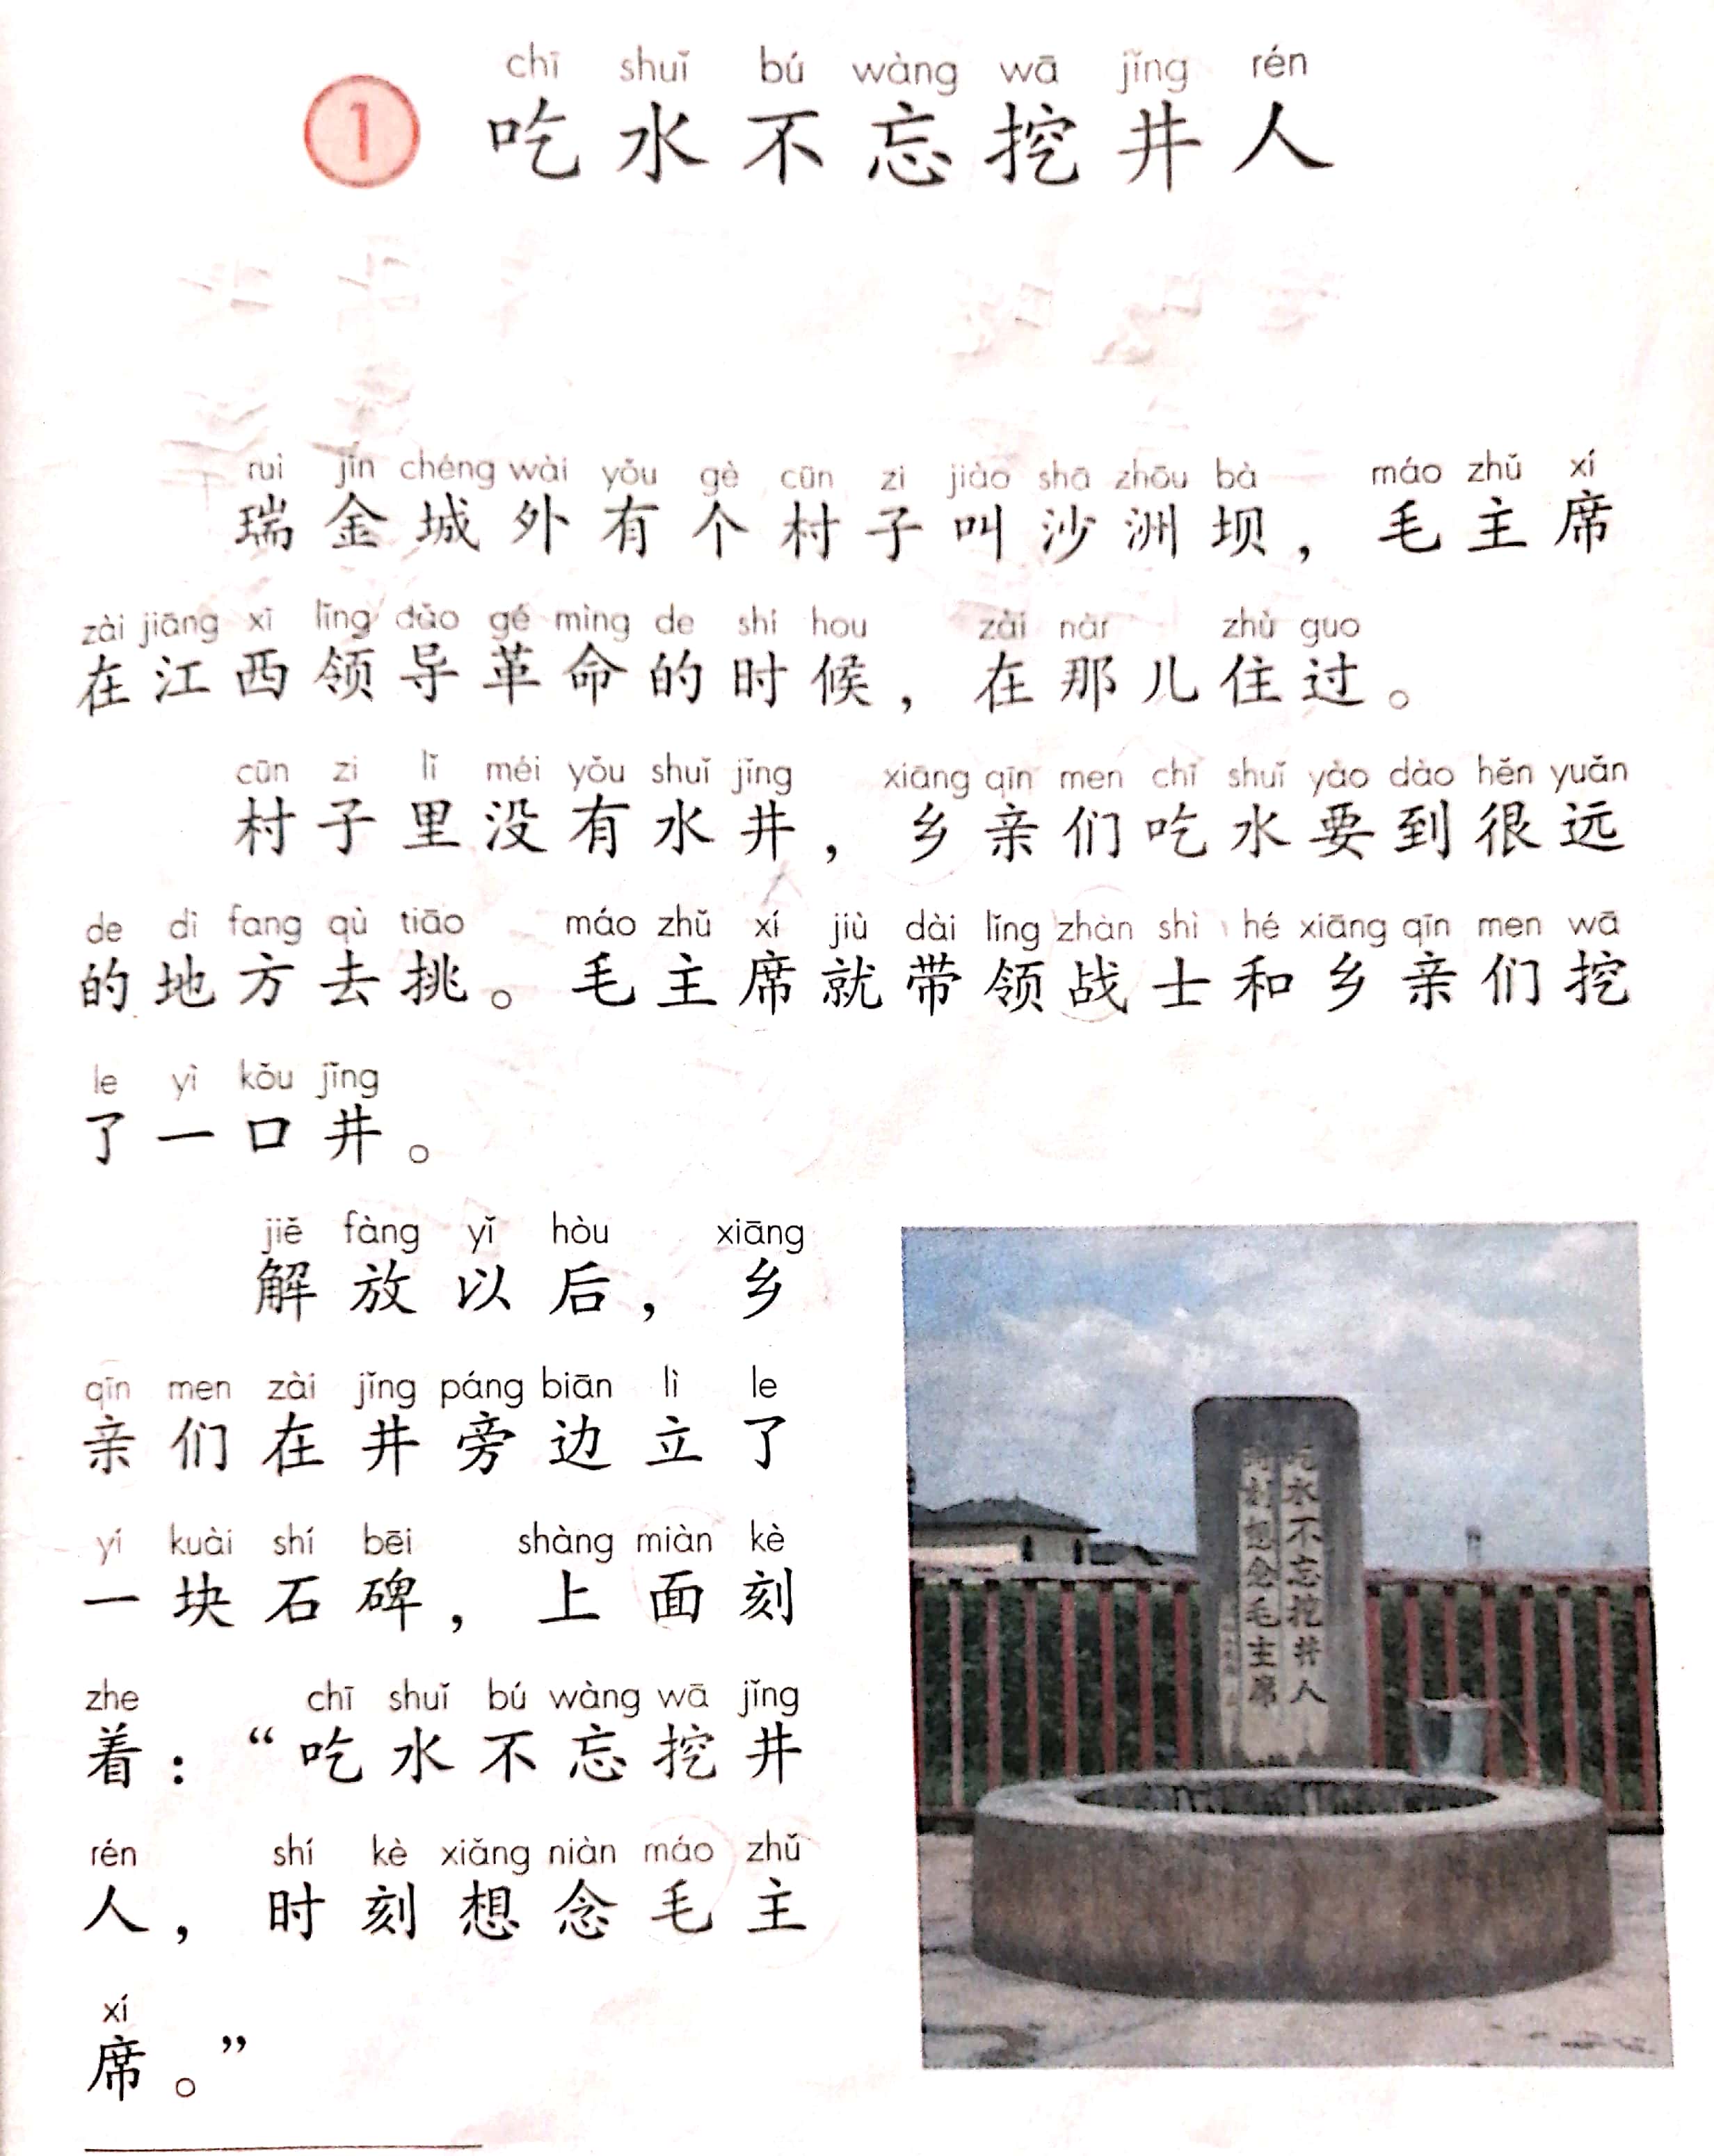 chī shuǐ bú wàng wā jǐng rén
1 吃水不忘挖井人
ruì jīn chéng wài yǒu gè cūn zi jiào shā zhōu bà máo zhǔ xí
瑞金城外有个村子叫沙洲坝，毛主席
zài jiāng xī lǐng dǎo gé mìng de shí hou zài nàr zhù guo
在江西领导革命的时候，在那儿住过。
cūn zi lǐ méi yǒu shuǐ jǐng xiāng qīn men chī shuǐ yào dào hěn yuǎn
村子里没有水井，乡亲们吃水要到很远
de dì fang qù tiāo máo zhǔ xí jiù dài lǐng zhàn shì hé xiāng qīn men wā
的地方去挑。毛主席就带领战士和乡亲们挖
le yì kǒu jǐng
了一口井。
jiě fàng yǐ hòu xiāng
解放以后，乡
qīn men zài jǐng páng biān lì le
亲们在井旁边立了
yí kuài shí bēi shàng miàn kè
一块石碑，上面刻
zhe chī shuǐ bú wàng wā jǐng
着：“吃水不忘挖井
rén shí kè xiǎng niàn máo zhǔ
人，时刻想念毛主
xí
席。”
吃水不忘挖井人
时刻想念毛主席